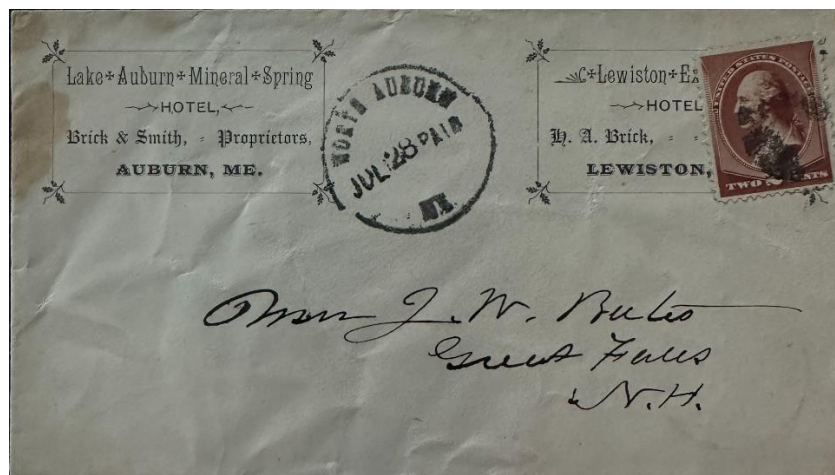 Lake Auburn Mineral Spring
HOTEL,
Brick & Smith, - Proprietors,
AUBURN, ME.
NORTH AUBURN
JUL 28 PAID
ME.
Lewiston
HOTEL
H. A. Brick, - -
LEWISTON,
UNITED STATES POSTAGE
TWO CENTS
J. W. Bates
Great Falls
N.H.